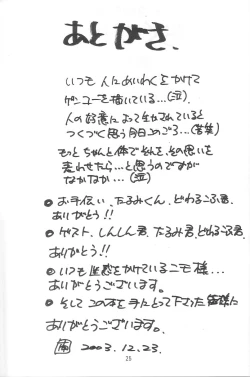 あとがき.
いつも人にめいわくをかけて
ゲンコーを描いている…(泣)
人の好意によって生かされていると
つくづく思う今日このごろ…(苦笑)
もっとちゃんと体で それを、その思いを
表わせたら…と思うのですが
なかなか… (泣)
● お手伝い、たるみくん、どわるこふ君、
ありがとう!!
● ゲスト、しんしん君、たるみ君、どわるこふ君、
ありがとう!!
● いつも迷惑をかけている 様…
ありがとうございます。
● そしてこの本を手にとって下さった皆様に
ありがとうございます。
2003.12.23.
25